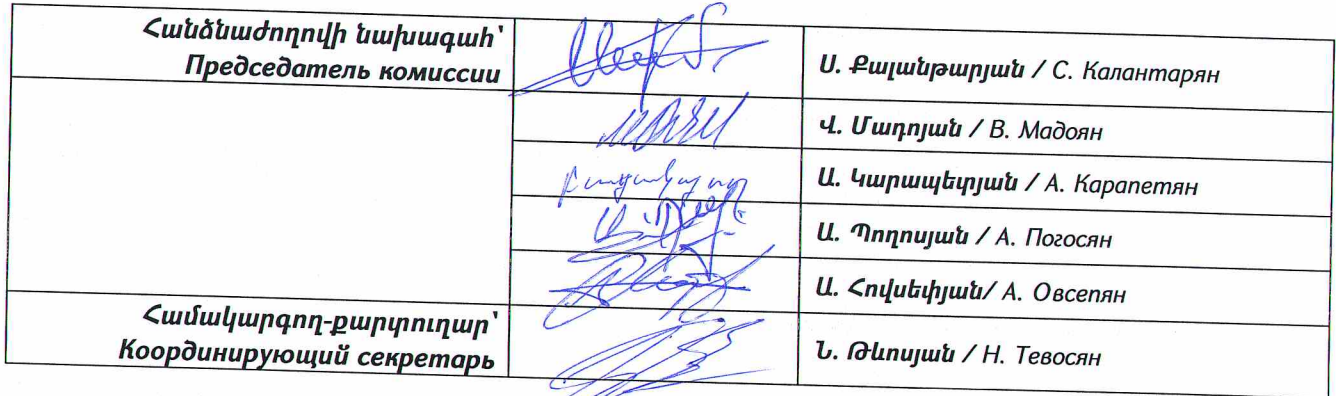 Հանձնաժողովի նախագահ՝
Председатель комиссии
Ս. Քալանթարյան / С. Калантарян
Վ. Մադոյան / В. Мадоян
բացակայում
Ա. Կարապետյան / А. Карапетян
Ա. Պողոսյան / А. Погосян
Ա. Հովսեփյան/ А. Овсепян
Համակարգող-քարտուղար՝
Координирующий секретарь
Ն. Թևոսյան / Н. Тевосян